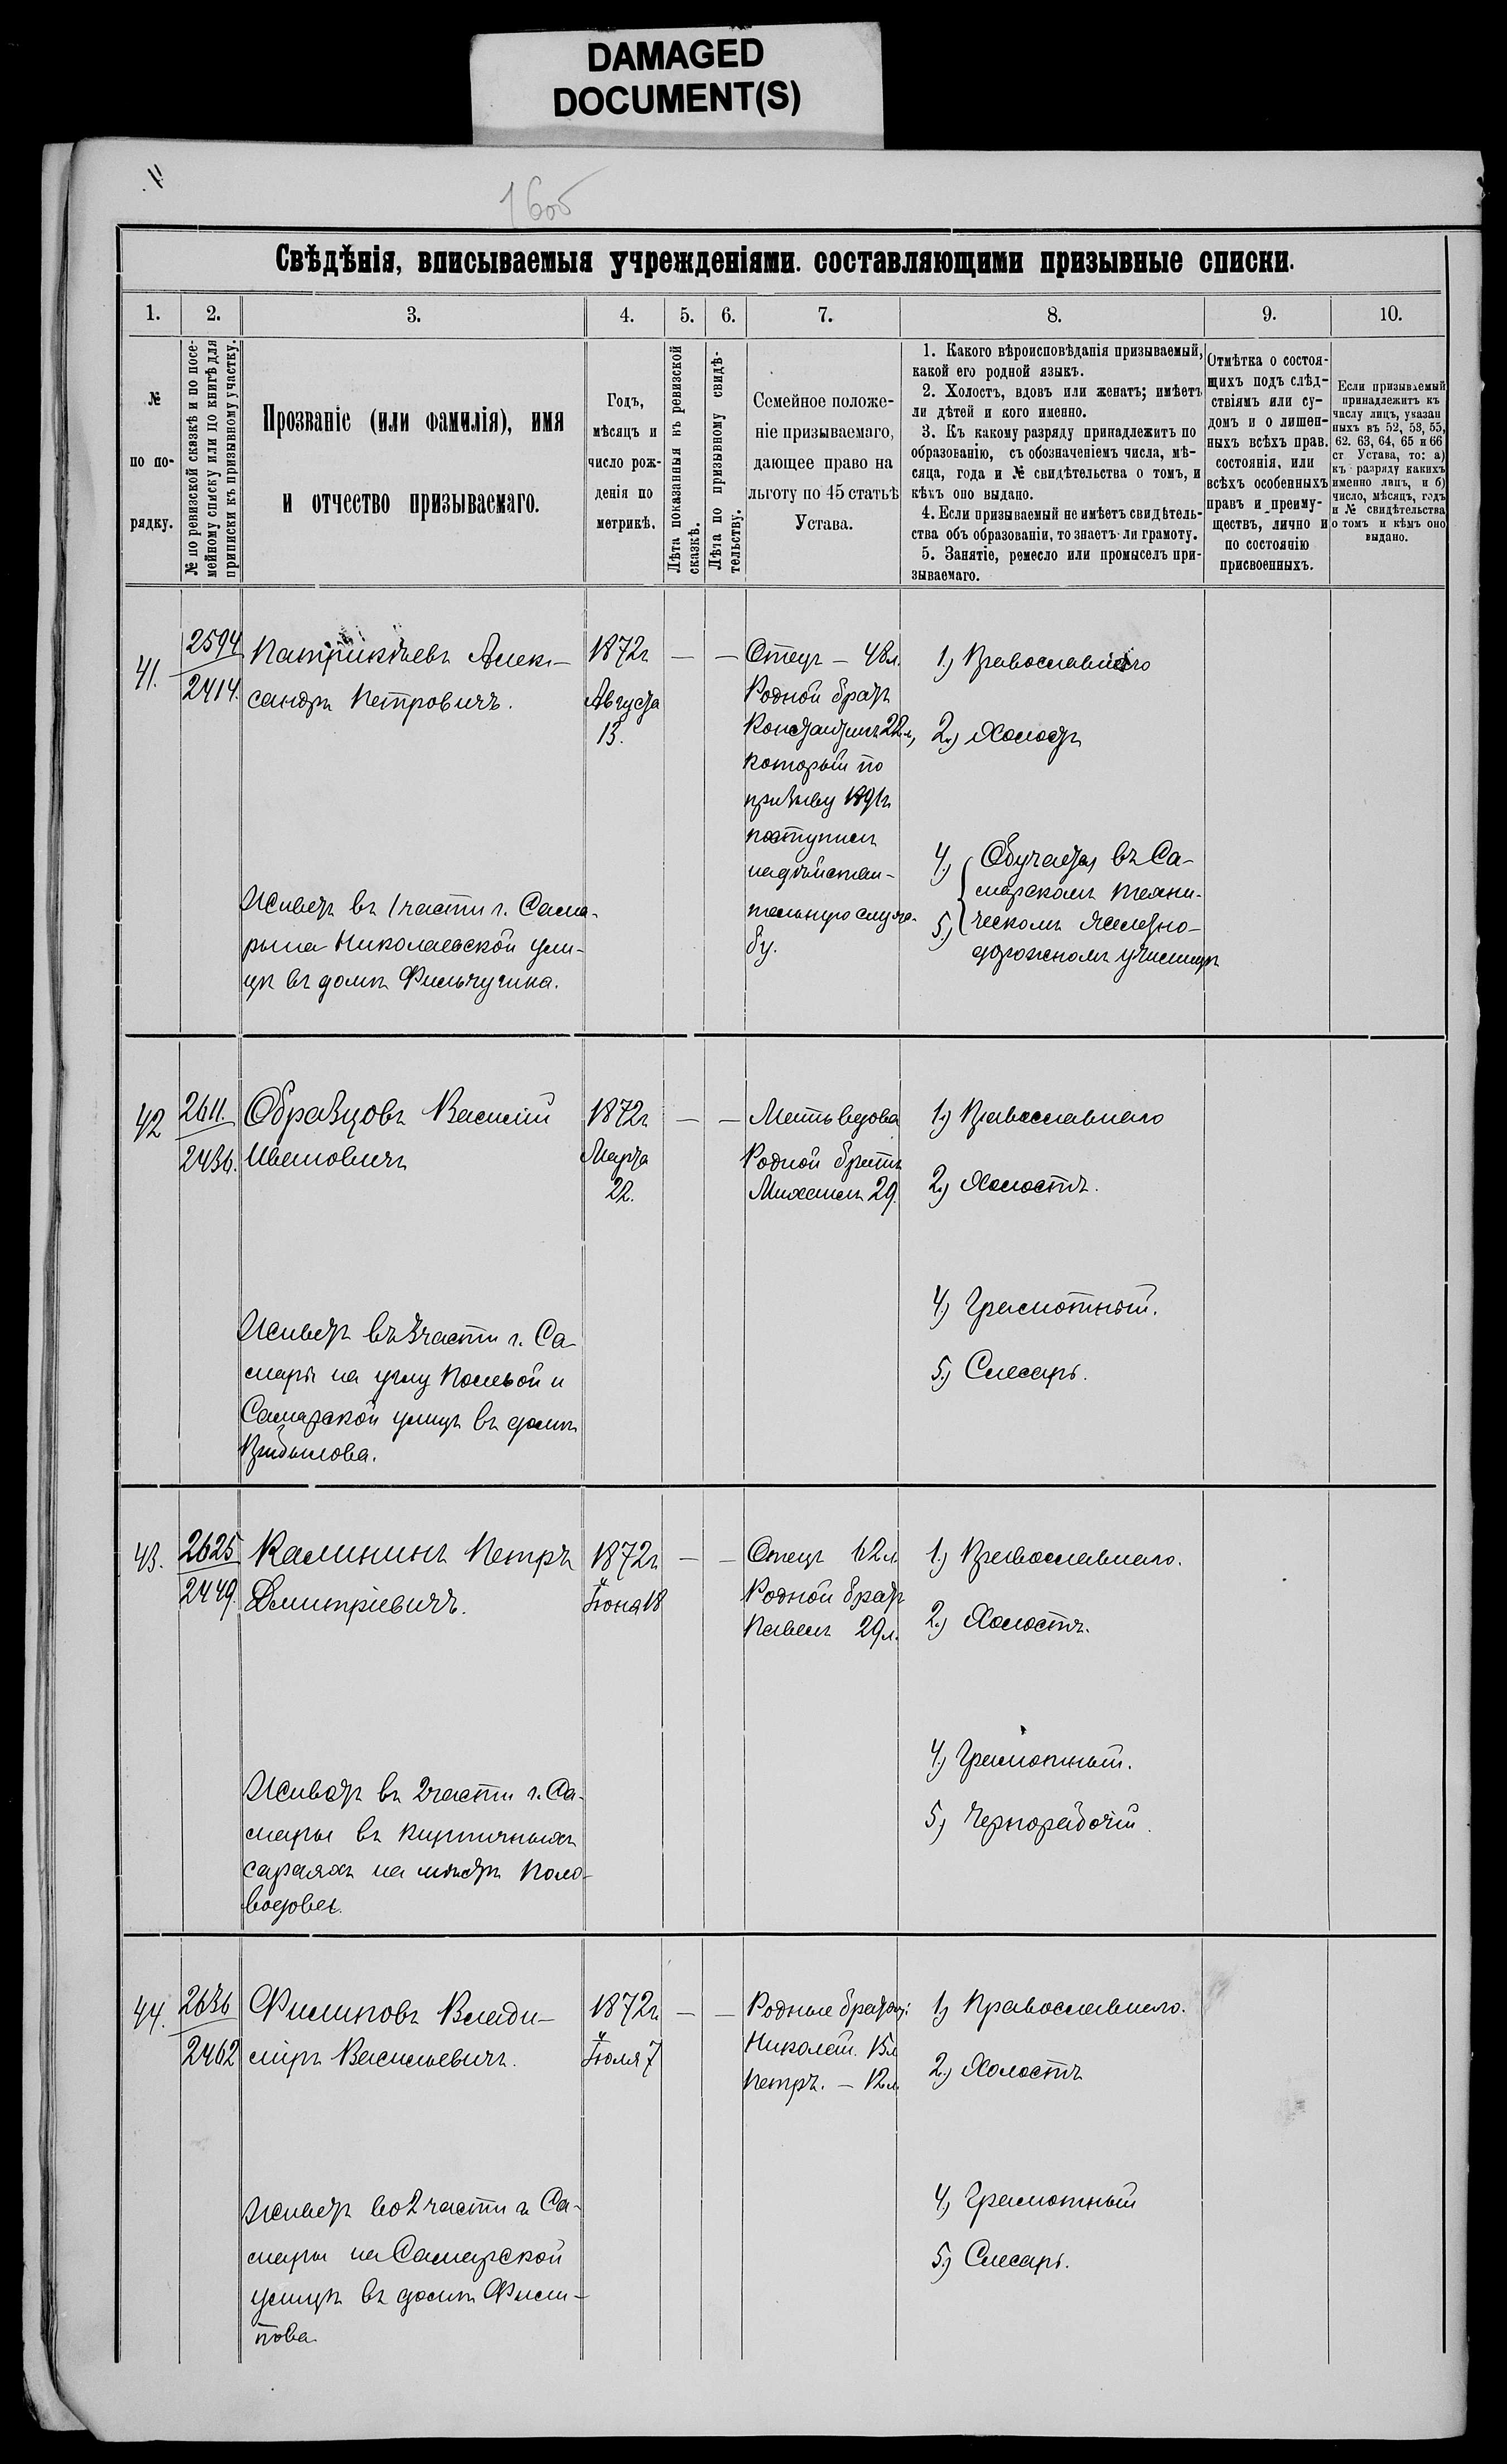 DAMAGED
DOCUMENT(S)
11.
16об
Свѣдѣнія, вписываемыя учрежденіями. составляющими призывные списки.
1. 2. 3. 4. 5. 6. 7. 8. 9. 10.
№
по по-
рядку.
№ по ревизской сказкѣ и по посе-
мейному списку или по книгѣ для
приписки къ призывному участку.
Прозваніе (или фамилія), имя
и отчество призываемаго.
Годъ,
мѣсяцъ и
число рож-
денія по
метрикѣ.
Лѣта показанныя къ ревизской
сказкѣ.
Лѣта по призывному свидѣ-
тельству.
Семейное положе-
ніе призываемаго,
дающее право на
льготу по 45 статьѣ
Устава.
1. Какого вѣроисповѣданія призываемый,
какой его родной языкъ.
2. Холостъ, вдовъ или женатъ; имѣетъ
ли дѣтей и кого именно.
3. Къ какому разряду принадлежитъ по
образованію, съ обозначеніемъ числа, мѣ-
сяца, года и № свидѣтельства о томъ, и
кѣмъ оно выдано.
4. Если призываемый не имѣетъ свидѣтель-
ства объ образованіи, то знаетъ-ли грамоту.
5. Занятіе, ремесло или промыселъ при-
зываемаго.
Отмѣтка о состоя-
щихъ подъ слѣд-
ствіямъ или су-
домъ и о лишен-
ныхъ всѣхъ прав.
состоянія, или
всѣхъ особенныхъ
правъ и преиму-
ществъ, лично и
по состоянію
присвоенныхъ.
Если призываемый
принадлежитъ къ
числу лицъ, указан
ныхъ въ 52, 53, 55,
62. 63, 64, 65 и 66
ст Устава, то: а)
къ разряду какихъ
именно лицъ, и б)
число, мѣсяцъ, годъ
и № свидѣтельства
о томъ и кѣмъ оно
выдано.
41.
2594
2414.
Патрикѣевъ Алек-
сандръ Петровичъ.
Живетъ въ 1 части г. Сама-
ры на Николаевской ули-
цѣ въ домѣ Фильчугина.
1872г
Августа
13.
—
—
Отецъ — 48л.
Родной братъ
Константинъ 22л,
который по
призыву 1891г
поступилъ
на дѣйстви-
тельную служ-
бу.
1.) Православнаго
2.) Холостъ
4.) Обучается въ Са-
марскомъ техни-
5.) ческомъ желѣзно-
дорожномъ училищѣ
42
2611.
2436.
Образцовъ Василій
Ивановичъ
Живетъ въ 3 части г. Са-
мары на углу Полевой и
Самарской улицъ въ домѣ
Прибылова.
1872г
Марта
22.
—
—
Мать вдова
Родной братъ
Михаилъ 29.
1.) Православнаго
2.) Холостъ.
4.) Грамотный.
5.) Слесарь.
43.
2625
2449.
Калининъ Петръ
Дмитріевичъ.
Живетъ въ 2 части г. Са-
мары въ кирпичныхъ
сараяхъ на мѣстѣ Поло-
водова.
1872г
Іюня 18
—
—
Отецъ 62л
Родной братъ
Павелъ 29л.
1.) Православнаго.
2.) Холостъ.
4.) Грамотный.
5.) Чернорабочій.
44.
2636
2462
Филиповъ Влади-
міръ Васильевичъ.
Живетъ во 2 части г. Са-
мары на Самарской
улицѣ въ домѣ Фили-
пова
1872г
Іюля 7
—
—
Родные братья:
Николай. 15л
Петръ. — 12л
1.) Православнаго.
2.) Холостъ
4.) Грамотный
5.) Слесарь.